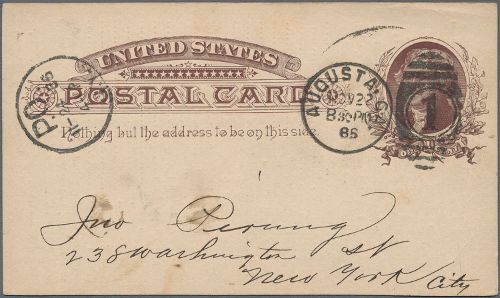 UNITED STATES
POSTAL CARD
Nothing but the address to be on this side.
AUGUSTA, GA.
NOV 22
8 30 PM
86
1
Jno
238 Washington St
New York City